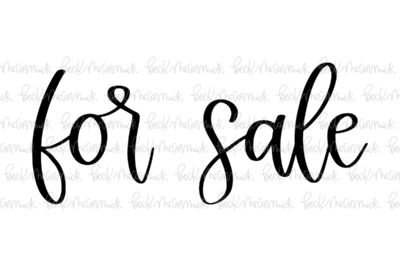 for sale